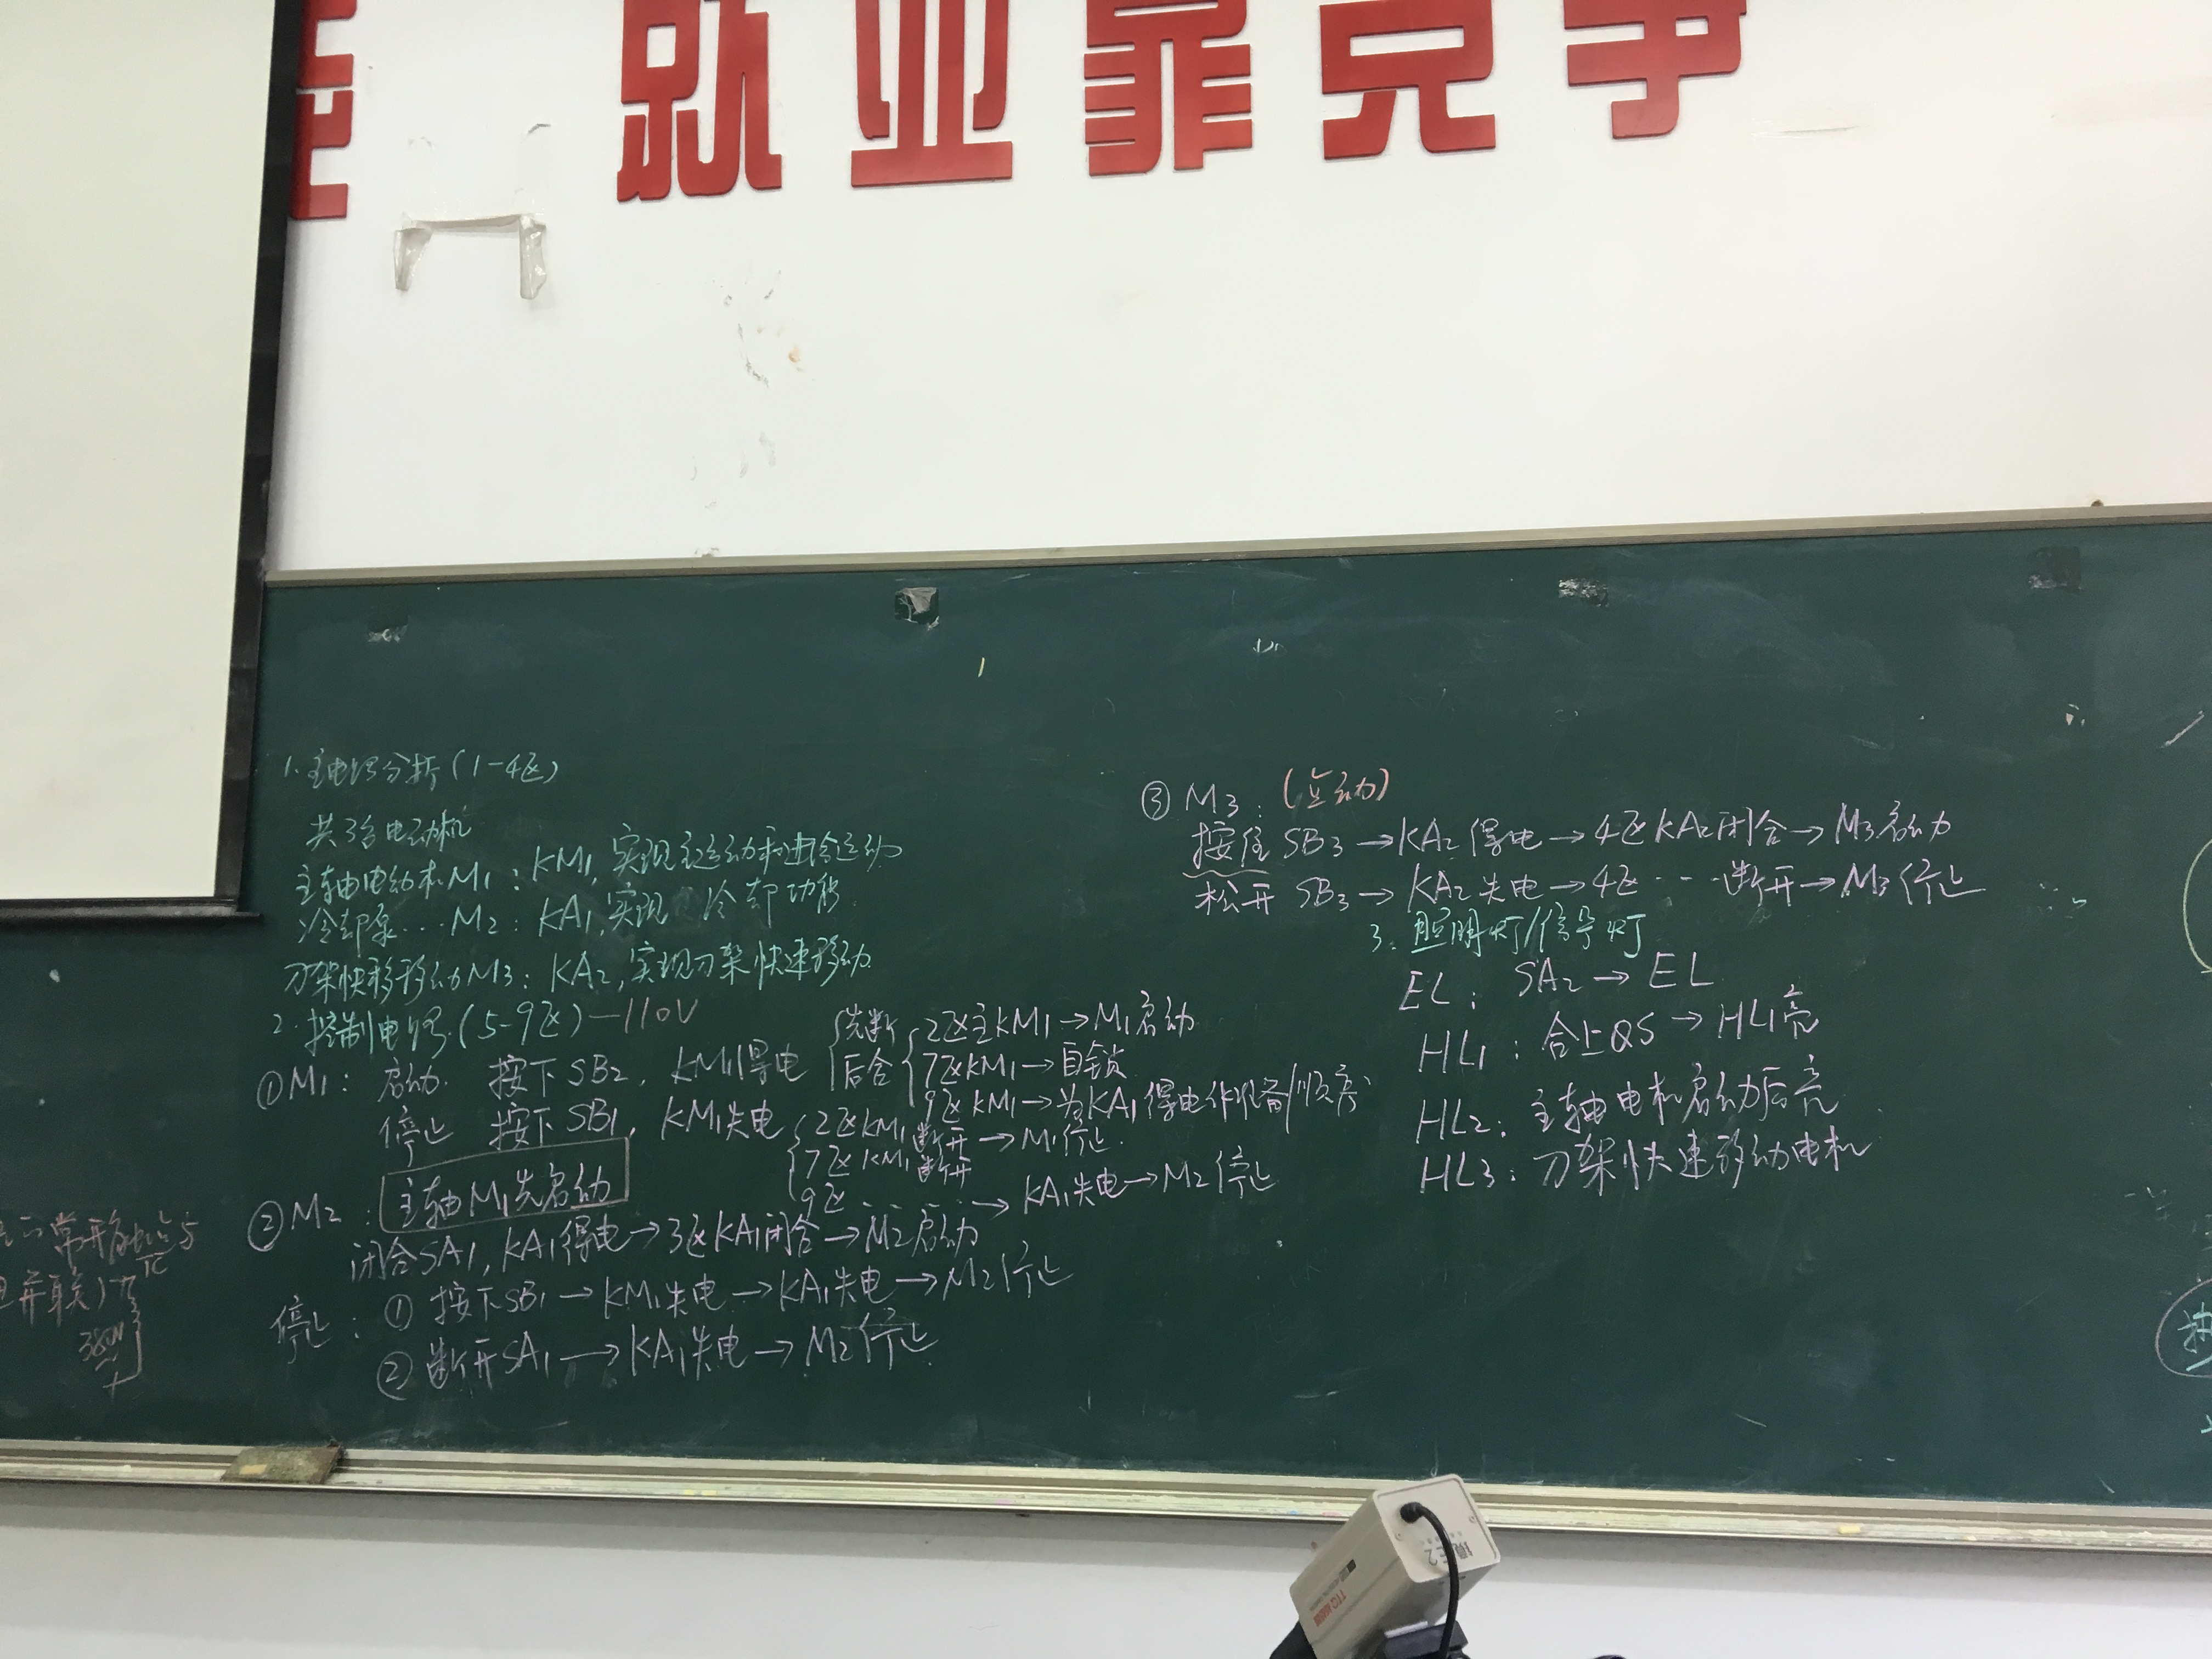 就业靠竞争
1.主电路分析(1-4区)
共3台电动机
主轴电动机M1:KM1,实现主运动和进给运动
冷却泵…M2:KA1,实现 冷却功能
刀架快移移动M3:KA2,实现刀架快速移动
2.控制电路(5-9区)—110V
①M1: 启动. 按下SB2, KM1得电 先断后合
2区主KM1→M1启动
7区KM1→自锁
9区KM1→为KA1得电作准备/顺序
停止 按下SB1, KM1失电
2区KM1断开→M1停止.
7区KM1断开
9区……→KA1失电→M2停止
②M2: 主轴M1先启动
闭合SA1, KA1得电→3区KA1闭合→M2启动
停止: ① 按下SB1→KM1失电→KA1失电→M2停止
② 断开SA1→KA1失电→M2停止
③ M3: (点动)
按住SB3→KA2得电→4区KA2闭合→M3启动
松开SB3→KA2失电→4区……断开→M3停止
3.照明灯/信号灯
EL: SA2→EL
HL1: 合上QS→HL1亮
HL2: 主轴电机启动后亮
HL3: 刀架快速移动电机
常开触点与
并联)
TC
380V
TTQ